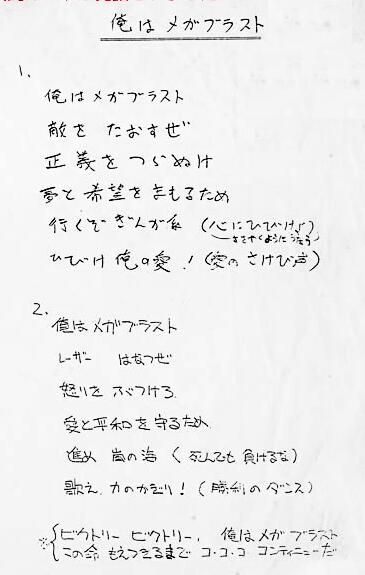 俺はメガブラスト
1.
俺はメガブラスト
敵を たおすぜ
正義を つらぬけ
夢と希望をまもるため
行くぞ ぎんが系 (心にひびけ)
ささやくようにうたう
ひびけ 俺の愛! (愛の さけび声)
2.
俺はメガブラスト
レーザー はなつぜ
怒りを ぶつけろ
愛と平和を守るため
進め 嵐の海 (死んでも 負けるな)
歌え 力のかぎり! (勝利のダンス)
※ ビクトリー ビクトリー, 俺はメガ ブラスト
この命 もえつきるまで コ・コ・コ コンティニューだ